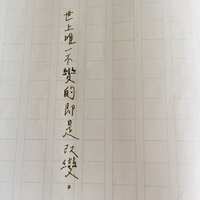 世上唯一不變的即是改變。